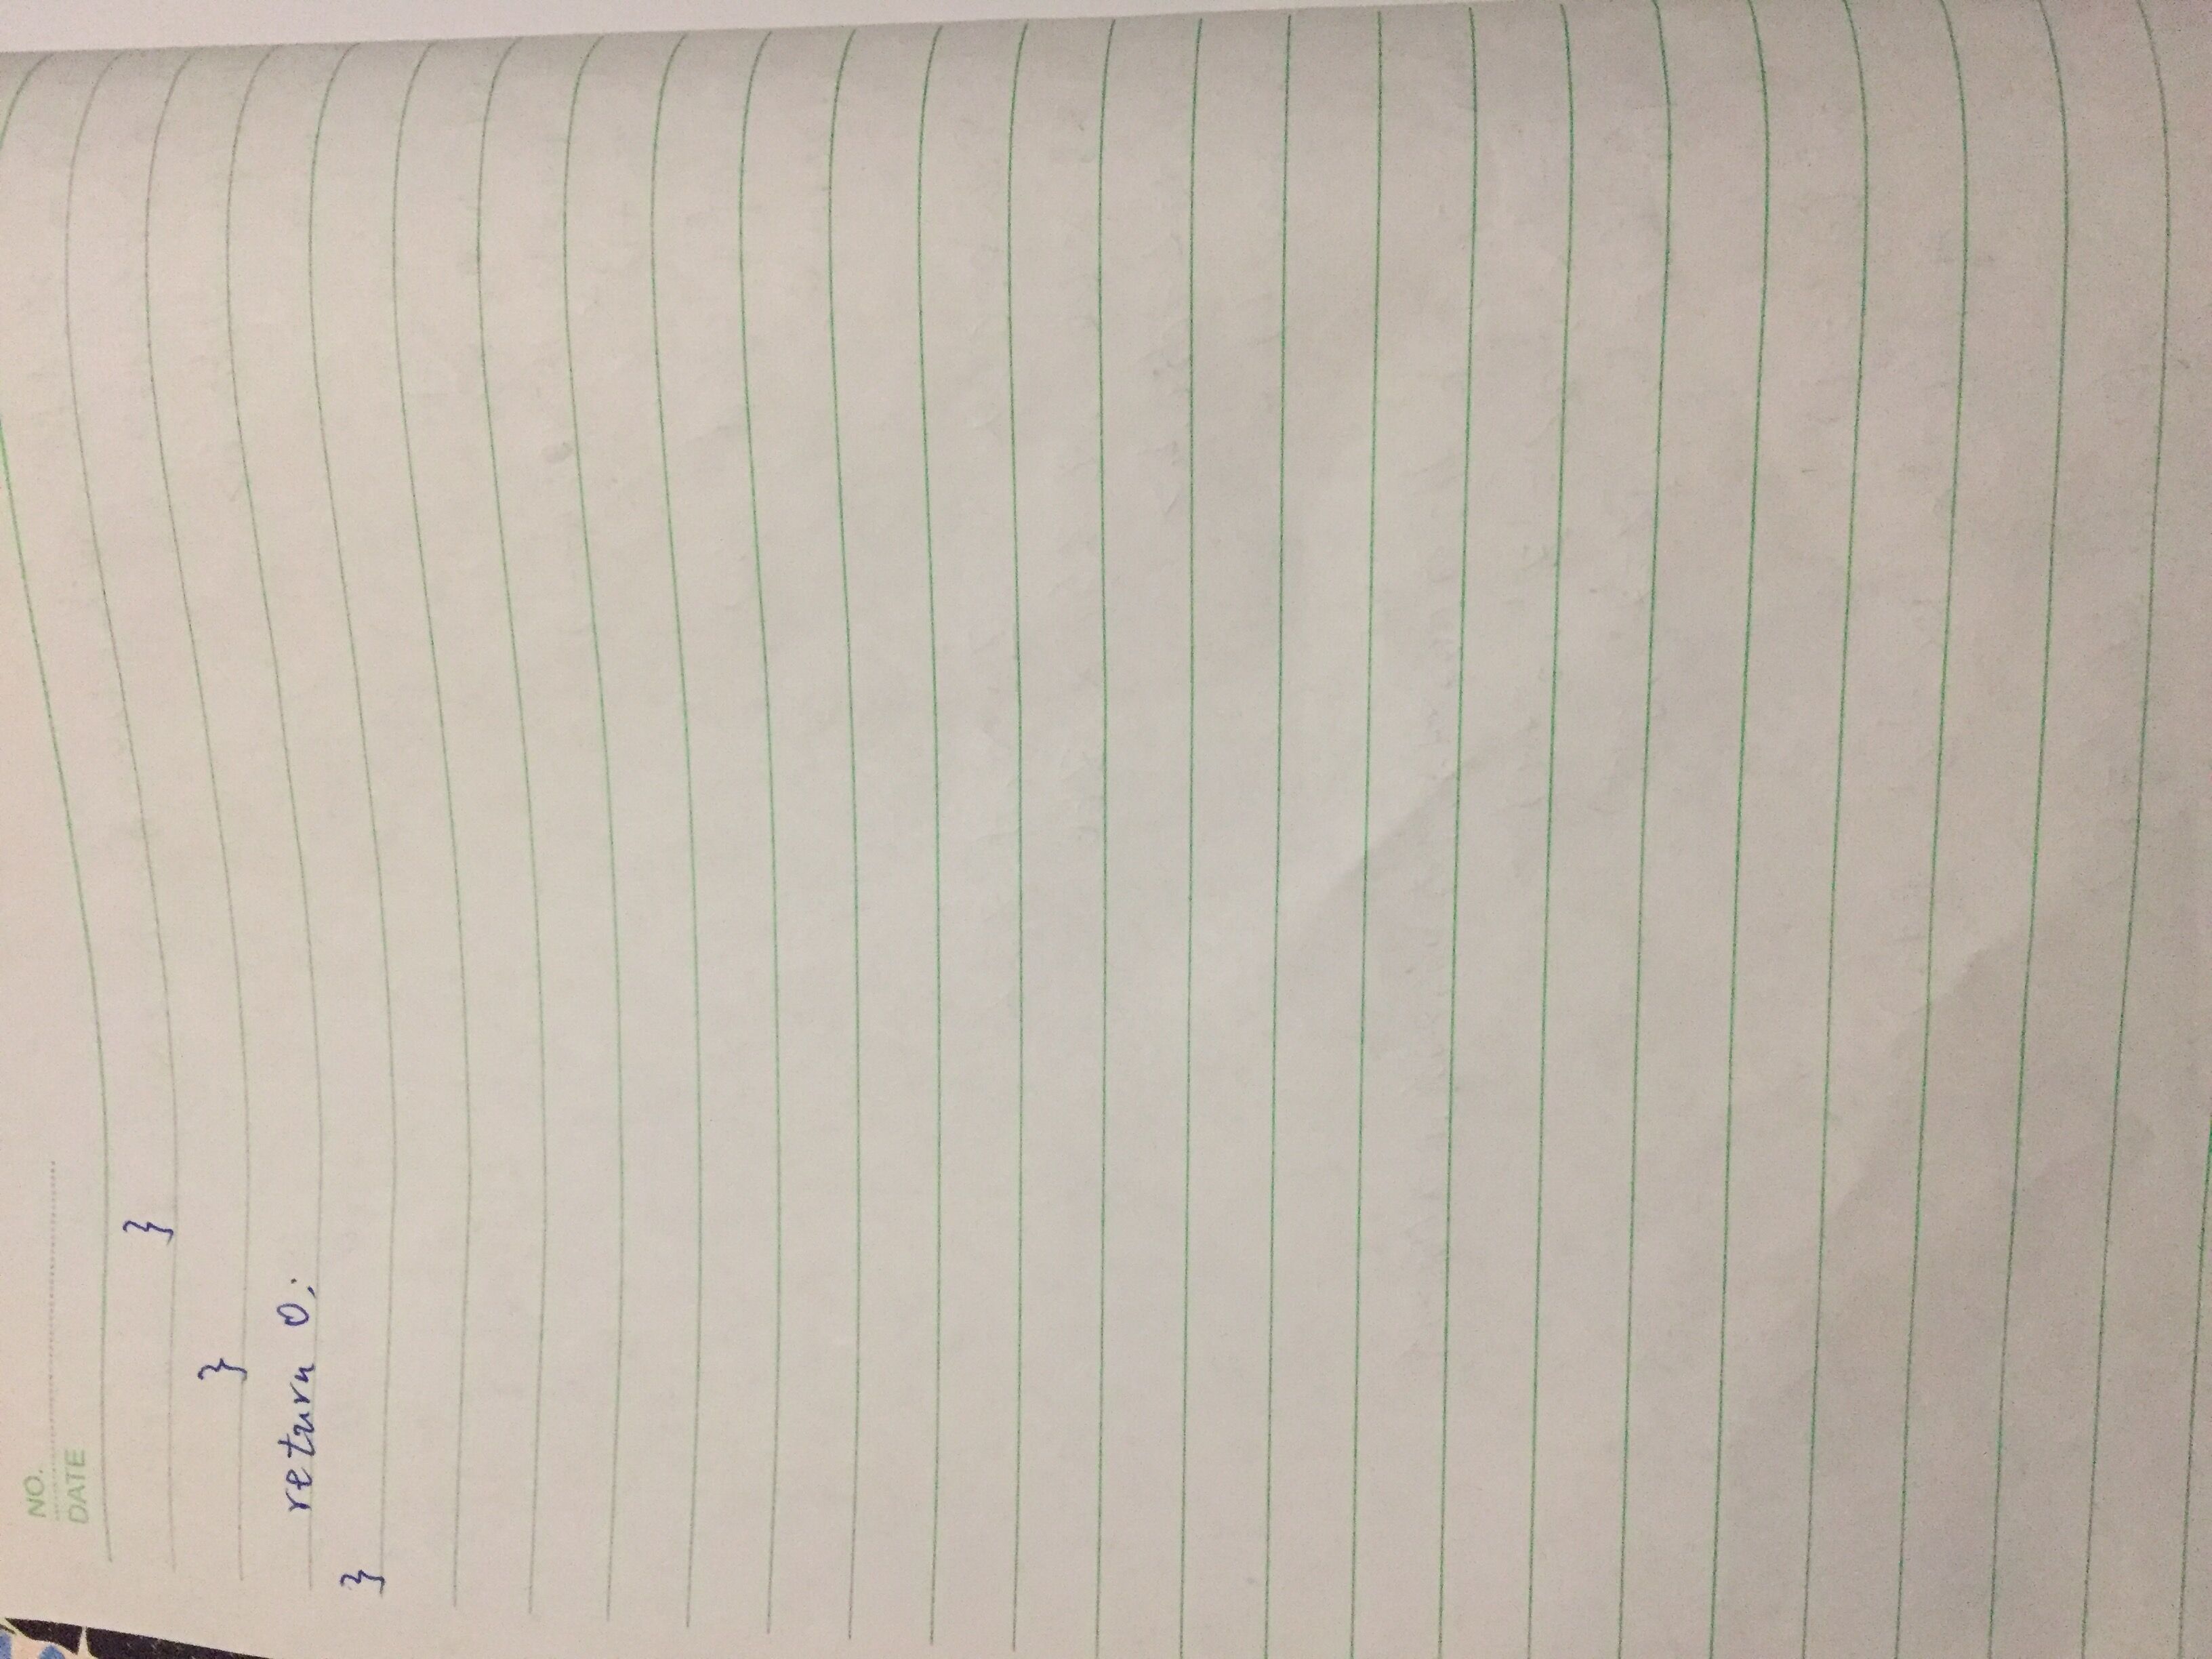 NO.
DATE
}
}
return 0;
}